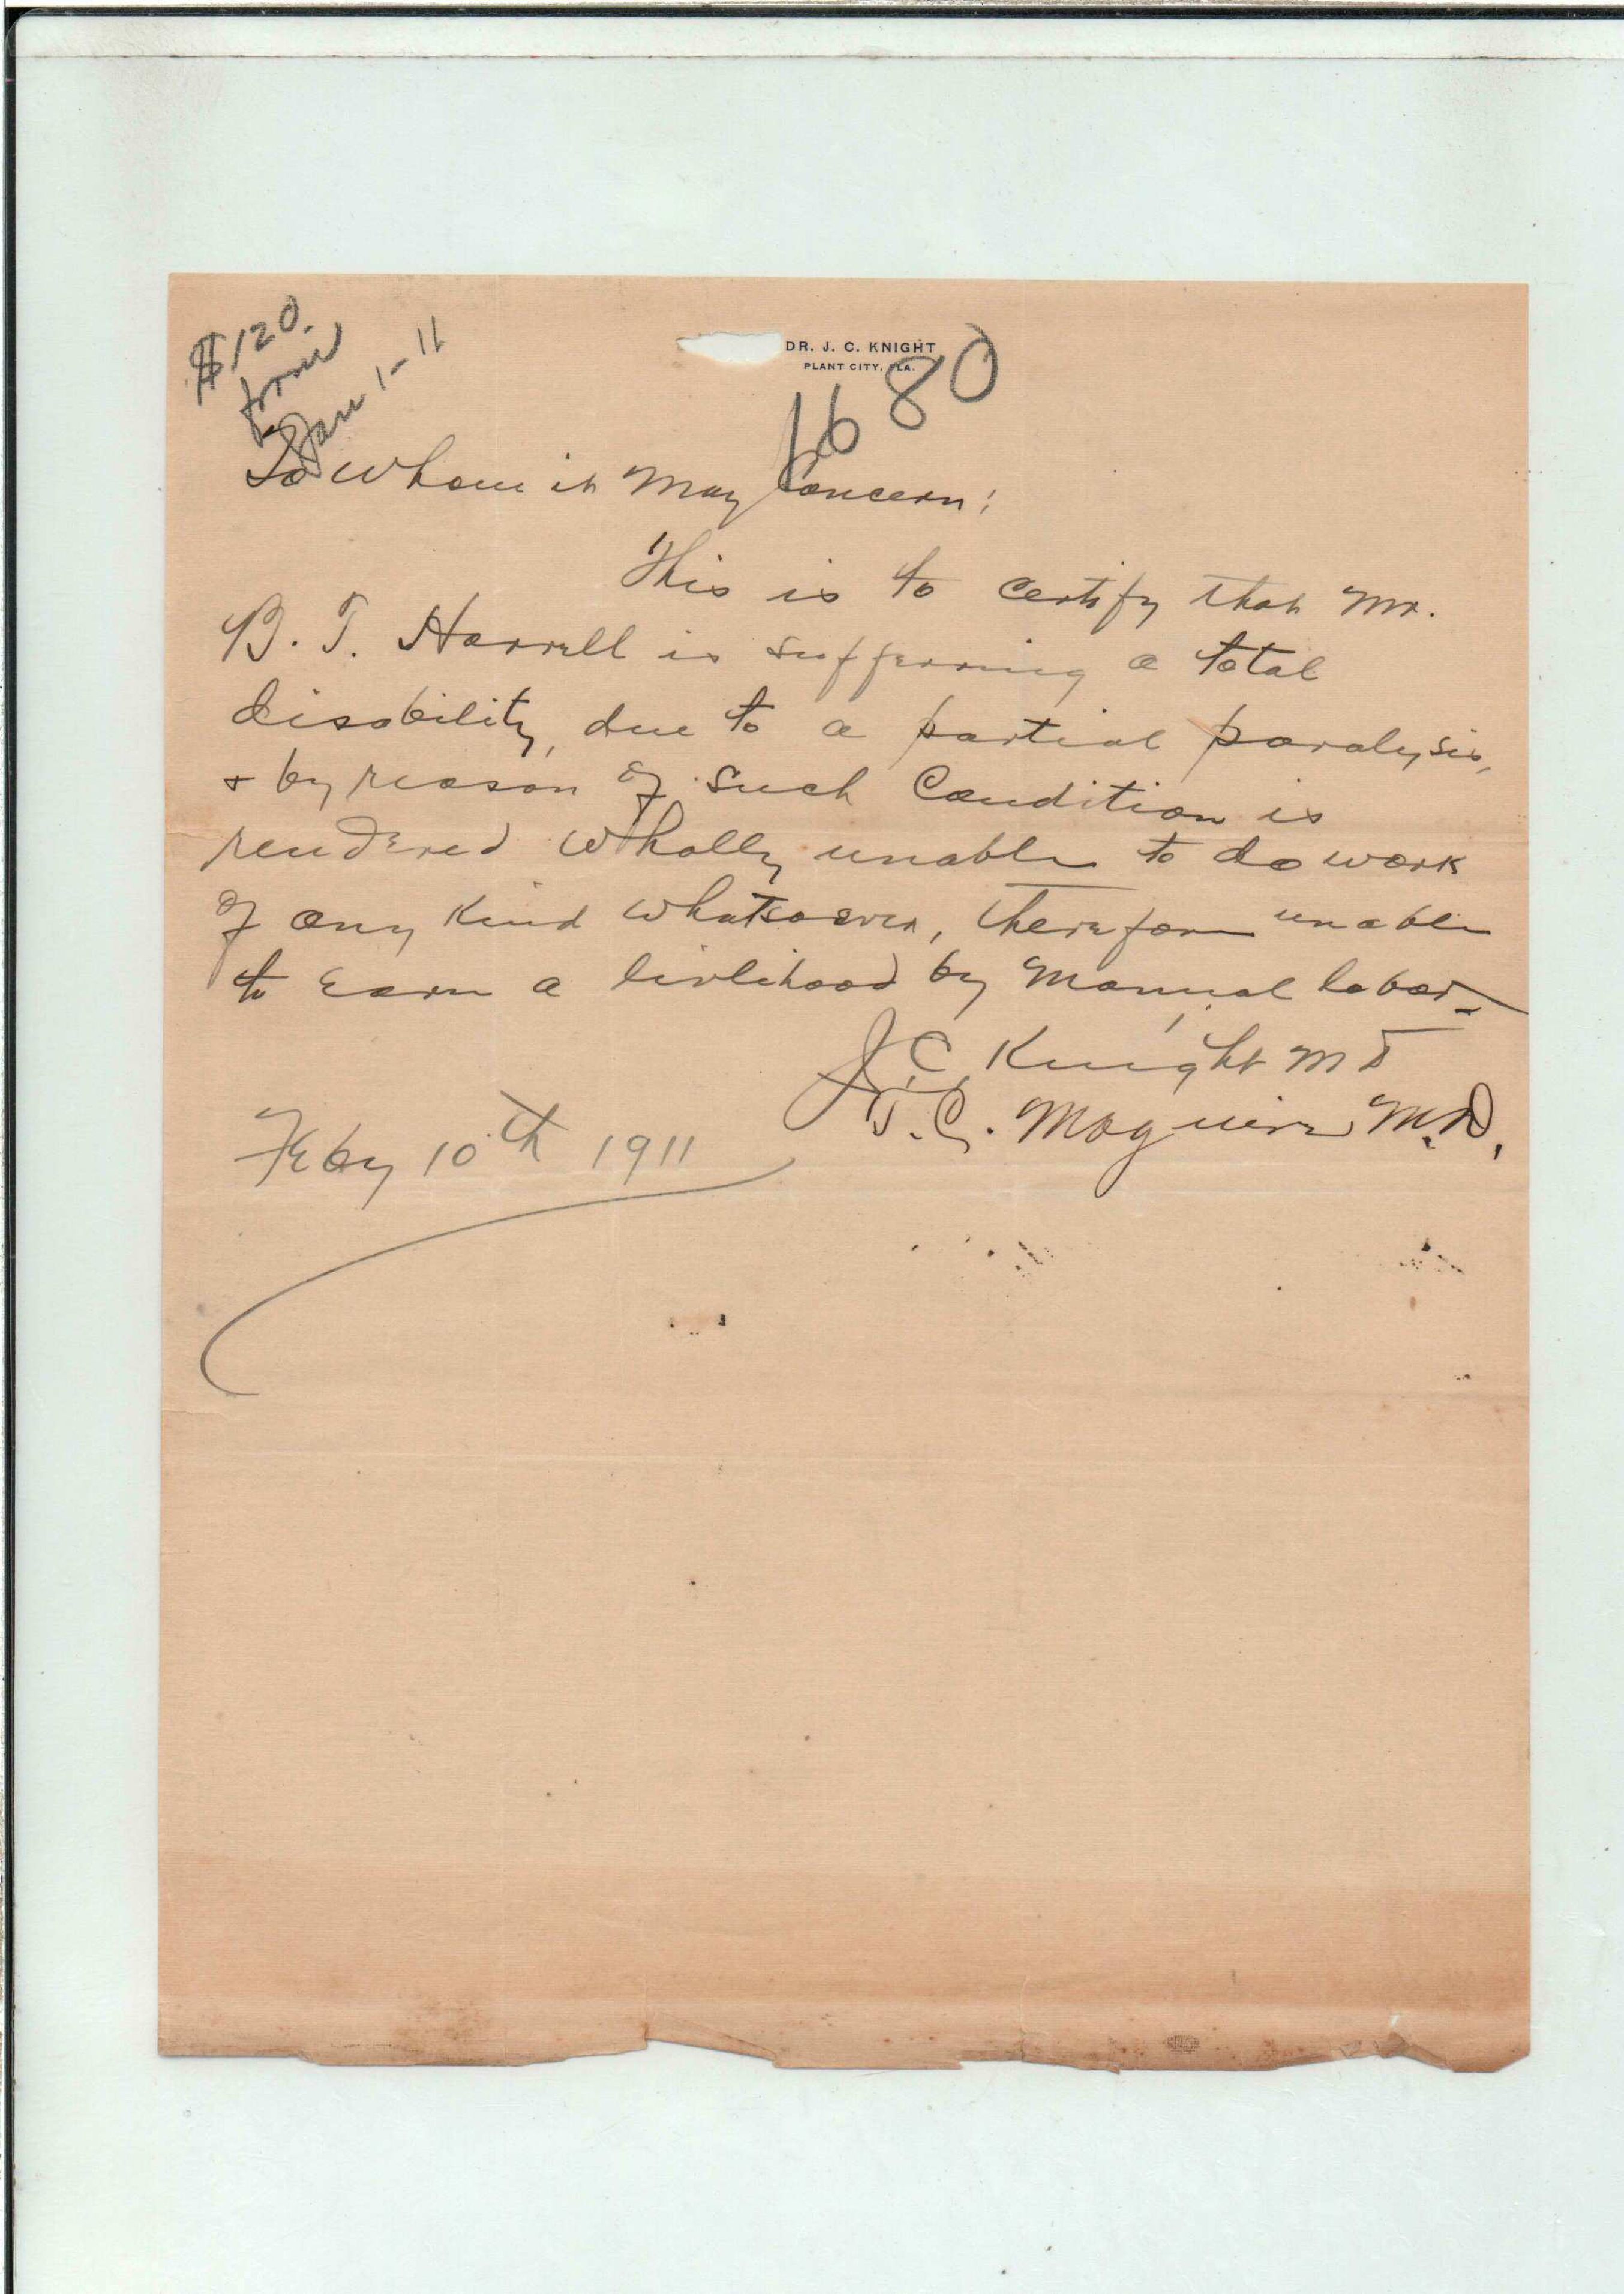 $120.
from
Jan 1-11
DR. J. C. KNIGHT
PLANT CITY, FLA.
1680
To whom it May Concern:
This is to certify that Mr.
B. T. Harrell is suffering a total
disability, due to a partial paralysis,
& by reason of such Condition is
rendered wholly unable to do work
of any kind whatsoever, therefore unable
to earn a livlihood by Manual labor.
J. C. Knight M D
T. C. Maguire M.D.
Feby 10th 1911